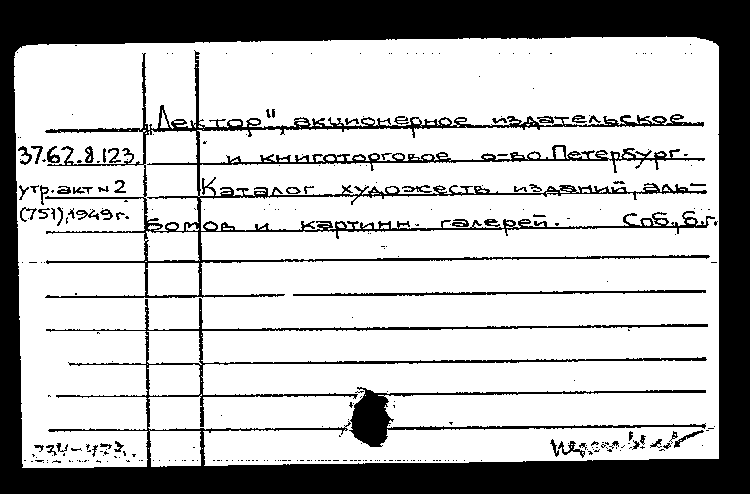 „Лектор", акционерное издательское
37.62.8.123. и книготорговое о-во. Петербург.
утр. акт № 2 Каталог художеств. изданий, аль-
(751), 1949 г. бомов и картинн. галерей. Спб., б.г.